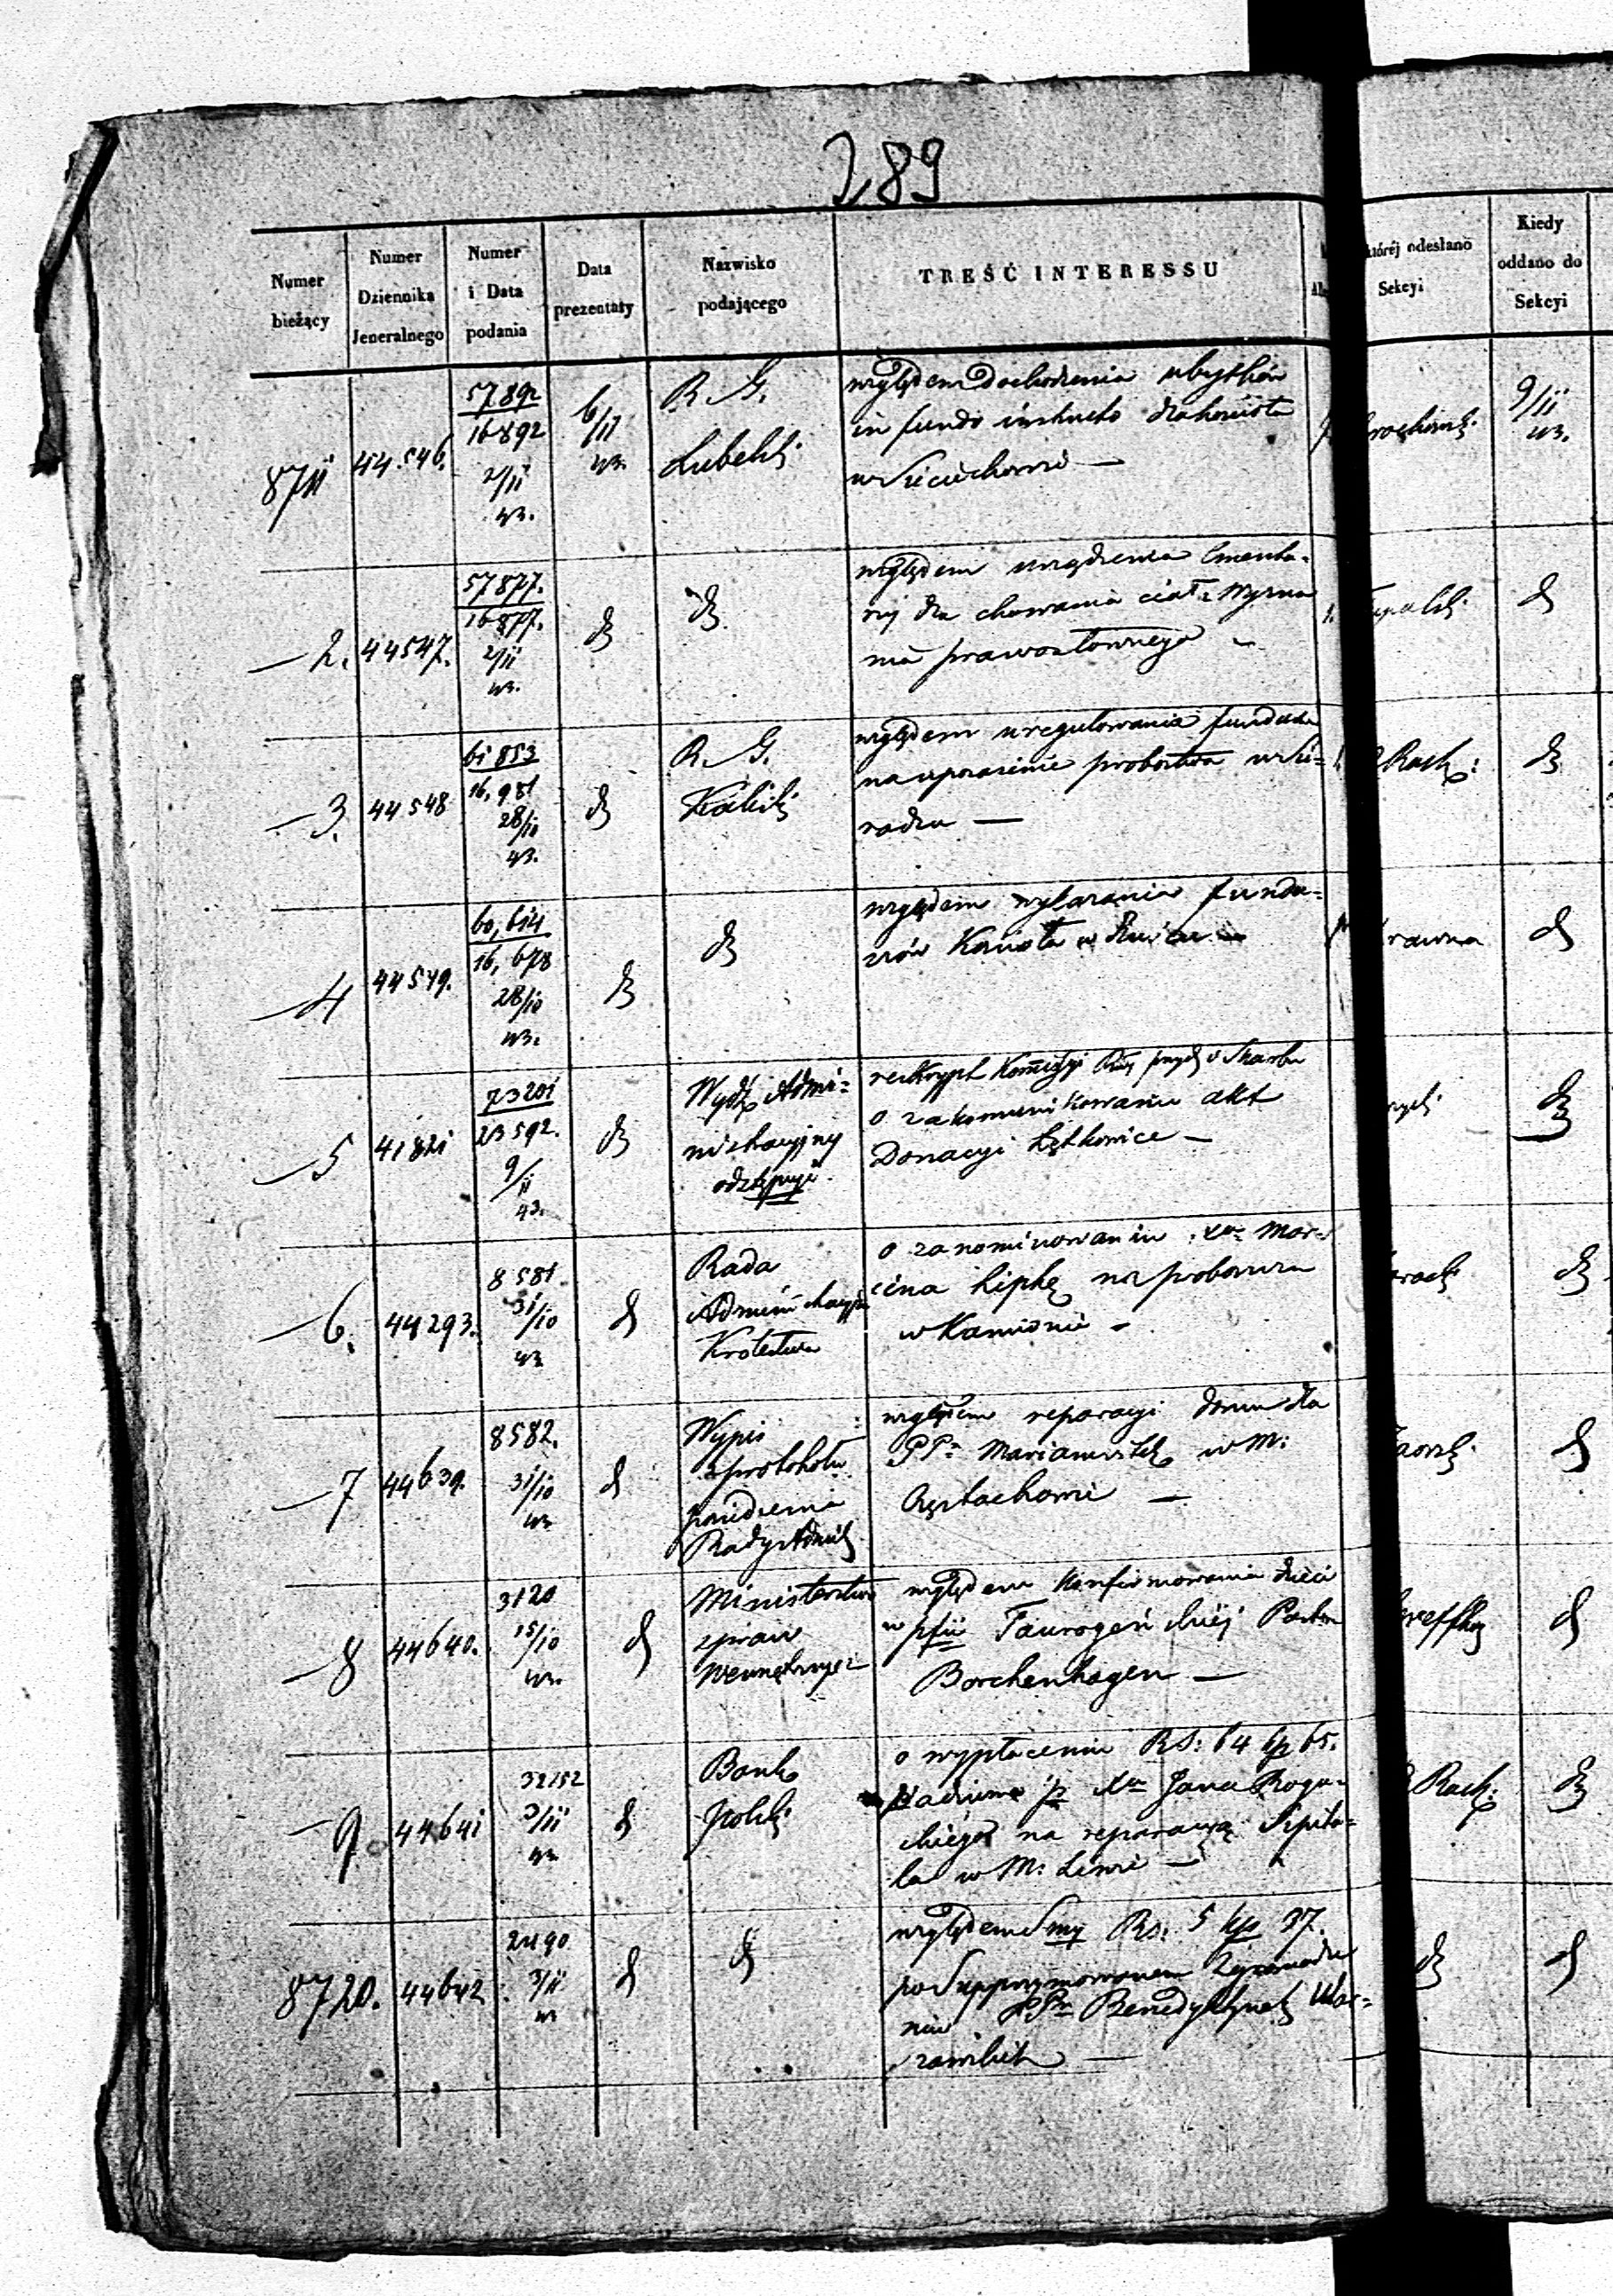 289
Numer bieżący
Numer Dziennika Jeneralnego
Numer i Data podania
Data prezentaty
Nazwisko podającego
TREŚĆ INTERESSU
któréj odesłano Sekcyi
Kiedy oddano do Sekcyi
8711
44.546.
57892
16892
2/11
43.
6/11
43.
R. G.
Lubelski
względem dochodzenia ubytków
in fundo instructo
w Sieciechowie —
9/11
43.
—2.
44547.
57877.
16877.
2/11
43.
względem urządzenia Cmenta-
rzy dla chowania ciał Wyzna
nia prawosławnego —
—3.
44548
61853
16,981
28/10
43.
R. G.
Kaliski
względem uregulowania funduszu
na uposażenie probostwa w Sie-
radzu —
R Rach:
—4
44549.
60,614
16,678
28/10
43.
względem wykazania fundu-
szów Kościoła w
—5
41821
73201
23592.
9/11
43.
Wydz. Admi-
nistracyjny
odstępuje
reskrypt Kommissyi Skarbu
o zakomunikowanie akt
Donacyi Łętkowice —
—6.
44293.
8581
31/10
43
Rada
Administracyjna
Królestwa
o zanominowaniu Xa Mar-
cina Lipkę na proboszcza
w Kamionie —
—7
44639.
8582.
31/10
43
Wypis
z protokołu
posiedzenia
Rady Admin
względem reparacyi domu dla
PP. Mariawitek w M:
Częstochowie —
—8
44640.
3120
15/10
43.
Ministerstwo
spraw
Wewnętrznych
względem Konfirmowania dzieci
w pfii Taurogeńskiéj Pastor
Borchenhagen —
—9
44641
32152
3/11
43
Bank
Polski
o wypłacenie RS: 64 kp 65.
Xa Jana Rogu-
skiego na reparacyą Szpita-
la w M: Liwie —
R Rach:
8720.
44642
2490
3/11
43
względem Smy Rs: 5 kp 37.
po Suppmymowanem Zgromadze
niu PPn Benedyktynek War-
szawskich —